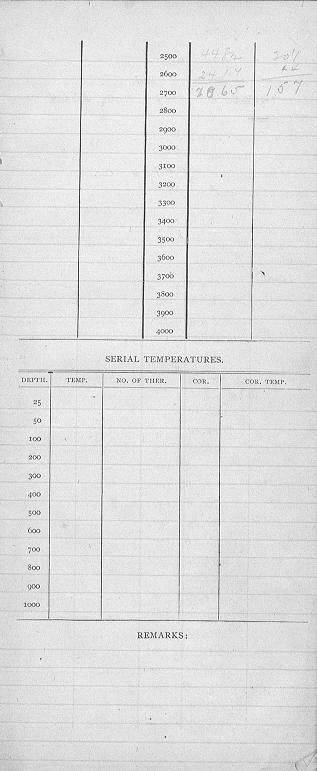 2500 201
2600
2700 157
2800
2900
3000
3100
3200
3300
3400
3500
3600
3700
3800
3900
4000
SERIAL TEMPERATURES.
DEPTH. TEMP. NO. OF THER. COR. COR. TEMP.
25
50
100
200
300
400
500
600
700
800
900
1000
REMARKS: